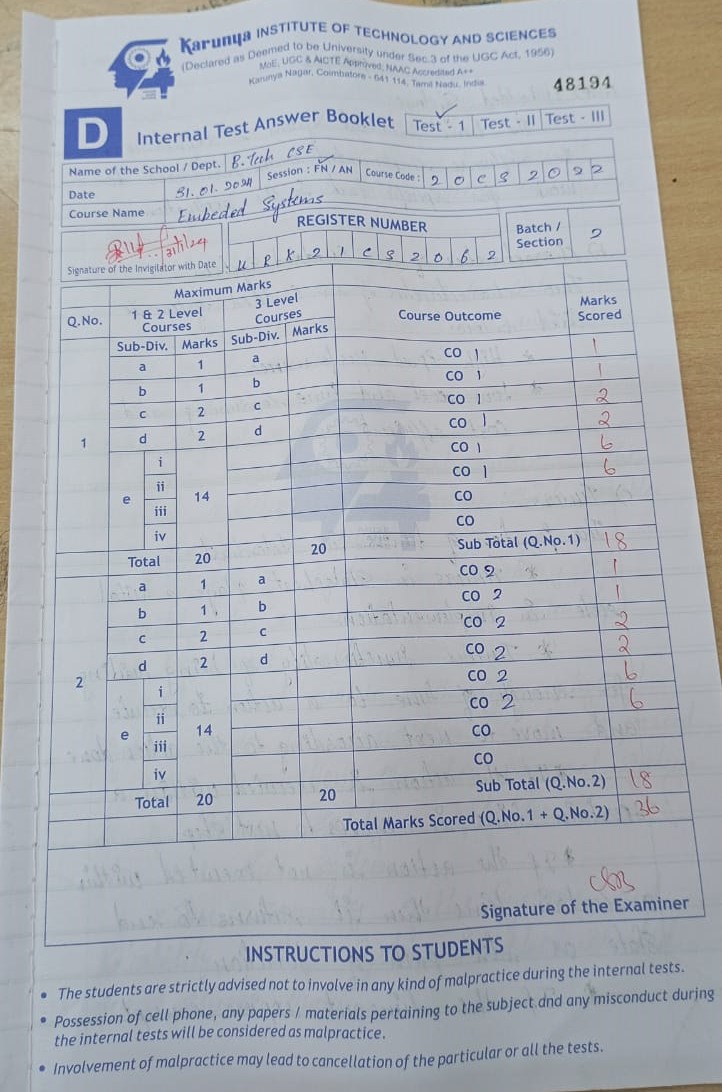 Karunya INSTITUTE OF TECHNOLOGY AND SCIENCES
(Declared as Deemed to be University under Sec.3 of the UGC Act, 1956)
MoE, UGC & AICTE Approved, NAAC Accredited A++
Karunya Nagar, Coimbatore - 641 114, Tamil Nadu, India.
48194
D
Internal Test Answer Booklet Test - I Test - II Test - III
Name of the School / Dept. B.Tech CSE
Date 31.01.2024 Session : FN / AN Course Code : 20CS2022
Course Name Embeded Systems
REGISTER NUMBER
Signature of the Invigilator with Date 31/1/24
URK21CS2062
Batch / Section 2
Q.No. Maximum Marks Course Outcome Marks Scored
1 & 2 Level Courses 3 Level Courses
Sub-Div. Marks Sub-Div. Marks
1
a 1 a CO 1 1
b 1 b CO 1 1
c 2 c CO 1 2
d 2 d CO 1 2
e 14
i CO 1 6
ii CO 1 6
iii CO
iv CO
Total 20 20 Sub Total (Q.No.1) 18
2
a 1 a CO 2 1
b 1 b CO 2 1
c 2 c CO 2 2
d 2 d CO 2 2
e 14
i CO 2 6
ii CO 2 6
iii CO
iv CO
Total 20 20 Sub Total (Q.No.2) 18
Total Marks Scored (Q.No.1 + Q.No.2) 36
Signature of the Examiner
INSTRUCTIONS TO STUDENTS
• The students are strictly advised not to involve in any kind of malpractice during the internal tests.
• Possession of cell phone, any papers / materials pertaining to the subject and any misconduct during
the internal tests will be considered as malpractice.
• Involvement of malpractice may lead to cancellation of the particular or all the tests.